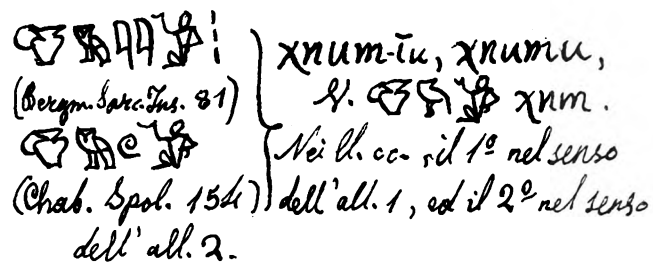 (Bergm. Sarc. Ins. 81)
(Chab. Spol. 154)
dell'all. 2.
χnum-ĭu, χnumu,
V. χnm.
Nei ll. cc., il 1º nel senso
dell'all. 1, ed il 2º nel senso